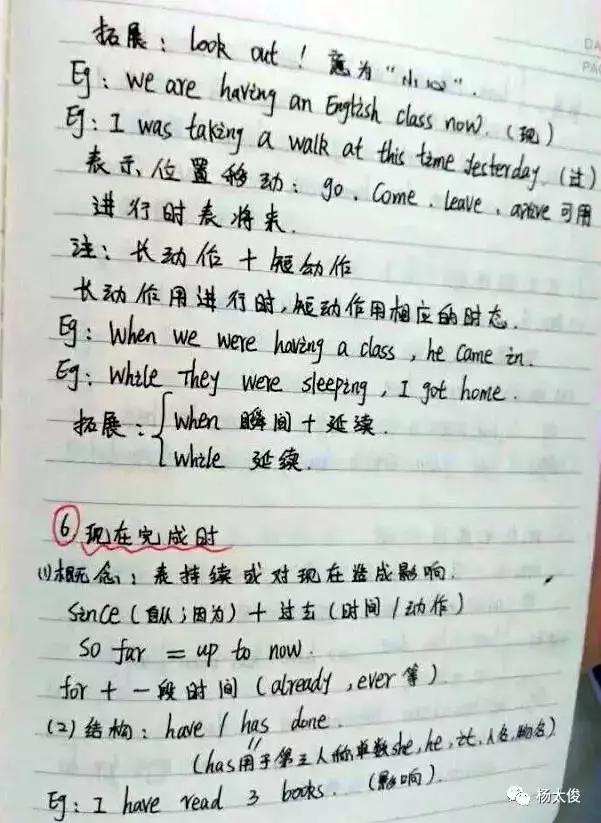 DA
PAG
拓展：look out！意为“小心”.
Eg：we are having an English class now.（现）
Eg：I was taking a walk at this time yesterday.（过）
表示位置移动：go、Come、leave、arrive可用
进行时表将来.
注：长动作＋短动作
长动作用进行时,短动作用相应的时态.
Eg：When we were having a class , he came in.
Eg：While they were sleeping , I got home.
拓展：{When 瞬间＋延续.
While 延续.
⑥现在完成时
(1)概念：表持续或对现在造成影响.
Since（自从；因为）＋过去（时间/动作）
So far = up to now.
for＋一段时间（already , ever等）
(2)结构：have / has done.
（has用于第三人称单数she, he, it, 人名, 物名）
Eg：I have read 3 books.（影响）.
杨太俊